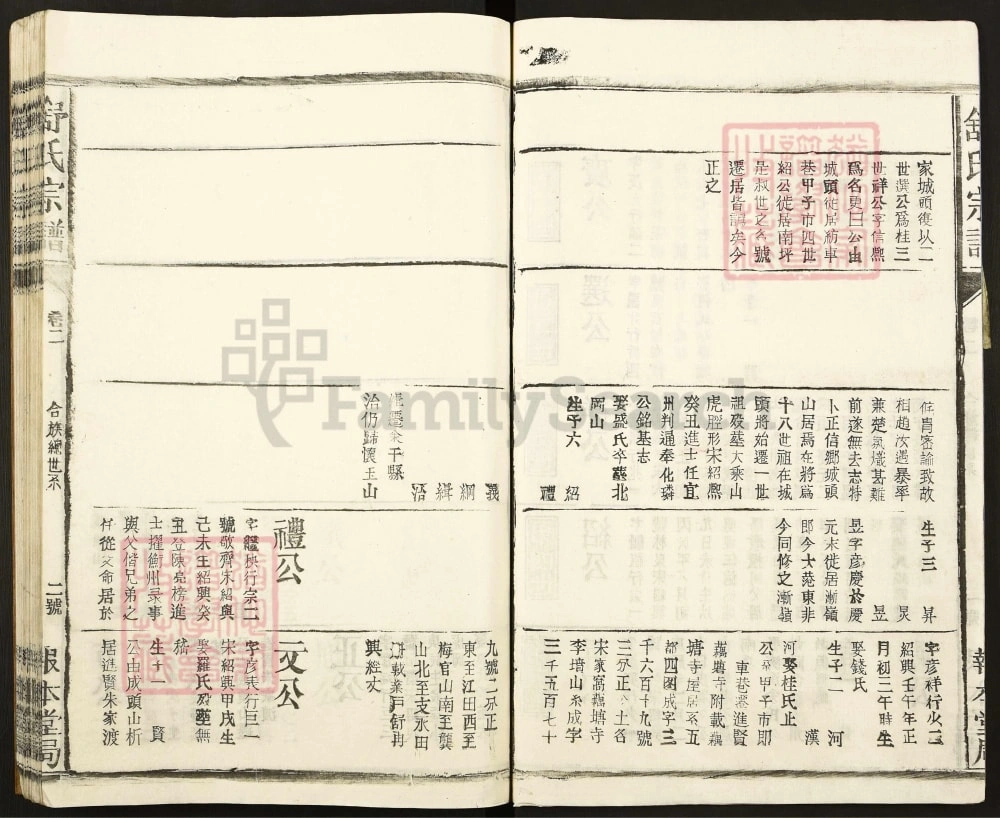 舒氏宗譜
家城頭復以二
世選公爲桂三
世祥公字信熈
爲名更曰公由
城頭徙居紡車
巷甲子市四世
紹公徙居南坪
是叔世之名號
遷居皆誤矣今
正之
侂胄密論致故
相趙汝遇暴卒
兼楚氣熾甚難
前遂無去志特
卜正信鄉城頭
山居焉在將爲
十八世祖在城
頭將始遷一世
祖歿墓大乘山
虎脛形宋紹熈
癸丑進士任宜
州判通奉化璘
公銘墓志
娶盛氏卒墓北
岡山
生子六
紹
禮
生子三 昇
炅
昱
昱字彦慶於慶
元末徙居漸嶺
郎今大苑東非
今同修之漸嶺
字彦祥行火二
紹興壬午年正
月初二午時生
娶錢氏
生子二 河
漢
河娶桂氏止
公平甲子市耶
車巷遷進賢
藕塘寺附載藕
塘寺屋居基五
都四图成字三
千六百十九號
三分正 土名
宋家窩藕塘寺
李墙山糸成字
三千五百七十
舒氏宗譜
卷二
合族總世系
二號
報本堂局
義
綱
緝
洽
洽仍歸懷玉山
禮公
字 秧行宗二
號敬齊朱紹興
己未王紹興癸
丑登陳亮榜進
士擢衢州录事
與父偕兄弟之
任從父命居於
九號二分正
東至江田西至
梅官山南至龔
山北至支水田
興粧丈
元公
字彦表行巨一
宋紹興甲戌生
娶羅氏歿墓無
稽
生子二 賢
公由成頭山析
居進賢朱家渡
報本堂局